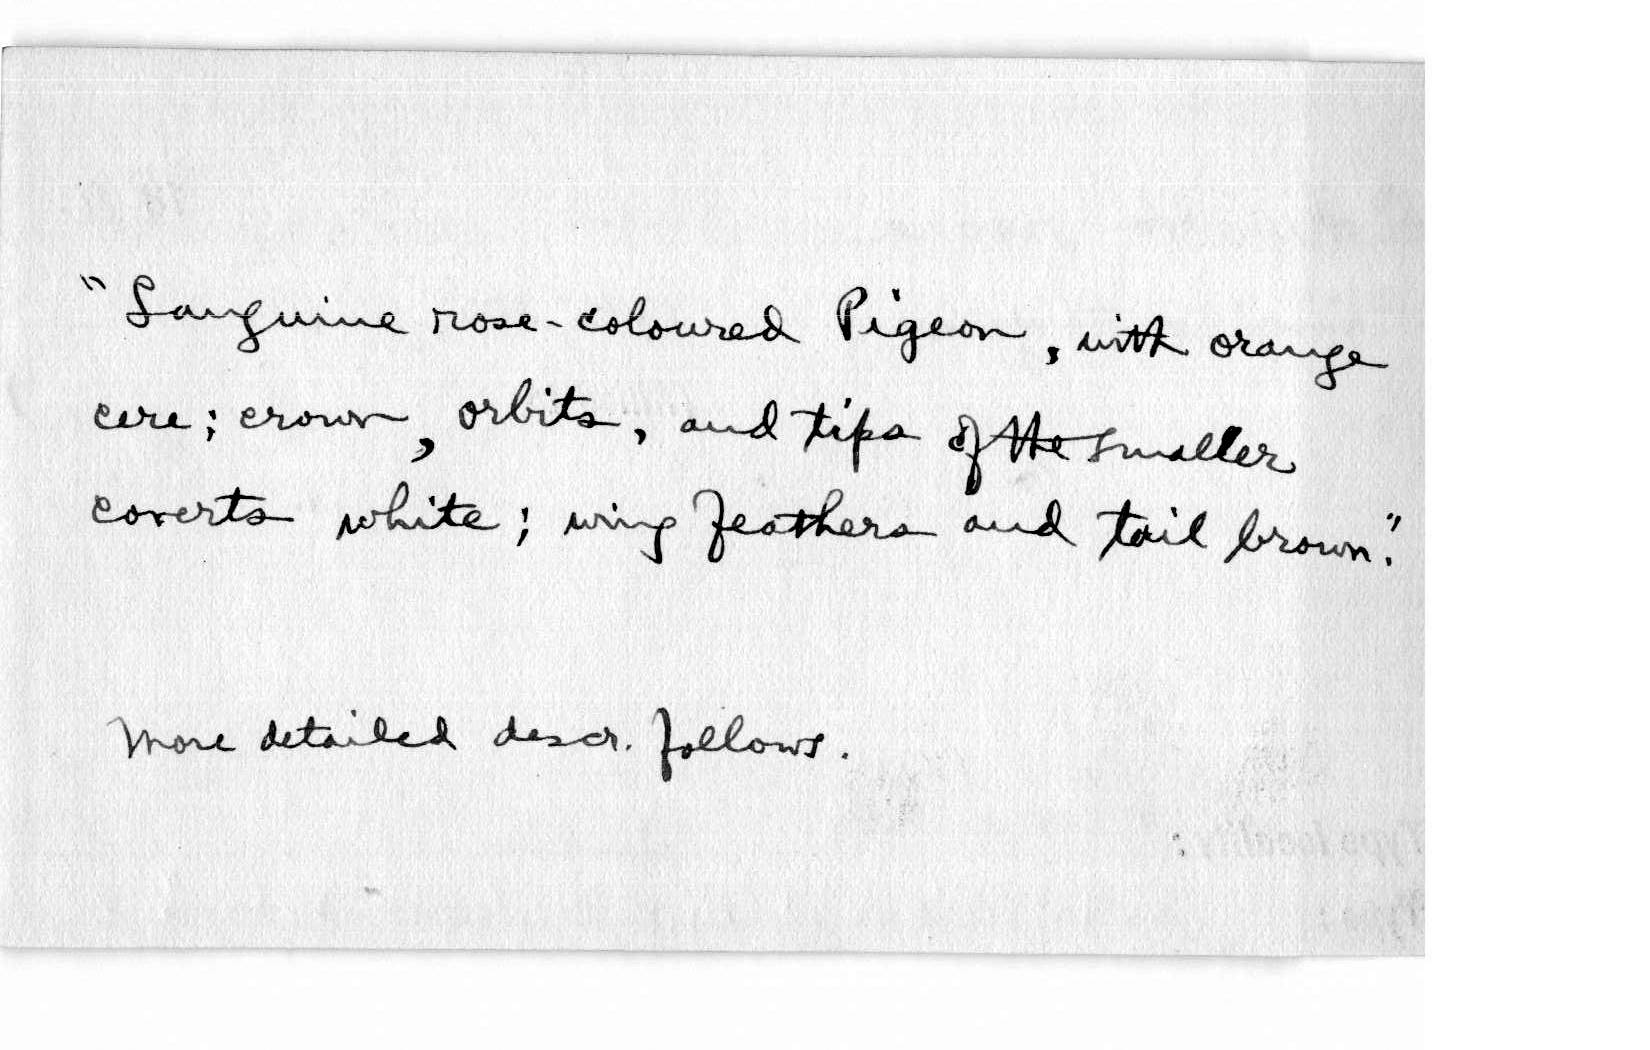 "Sanguine rose-coloured Pigeon, with orange
cere; crown, orbits, and tips of the smaller
coverts white; wing feathers and tail brown."
More detailed descr. follows.
Type locality:
Type: